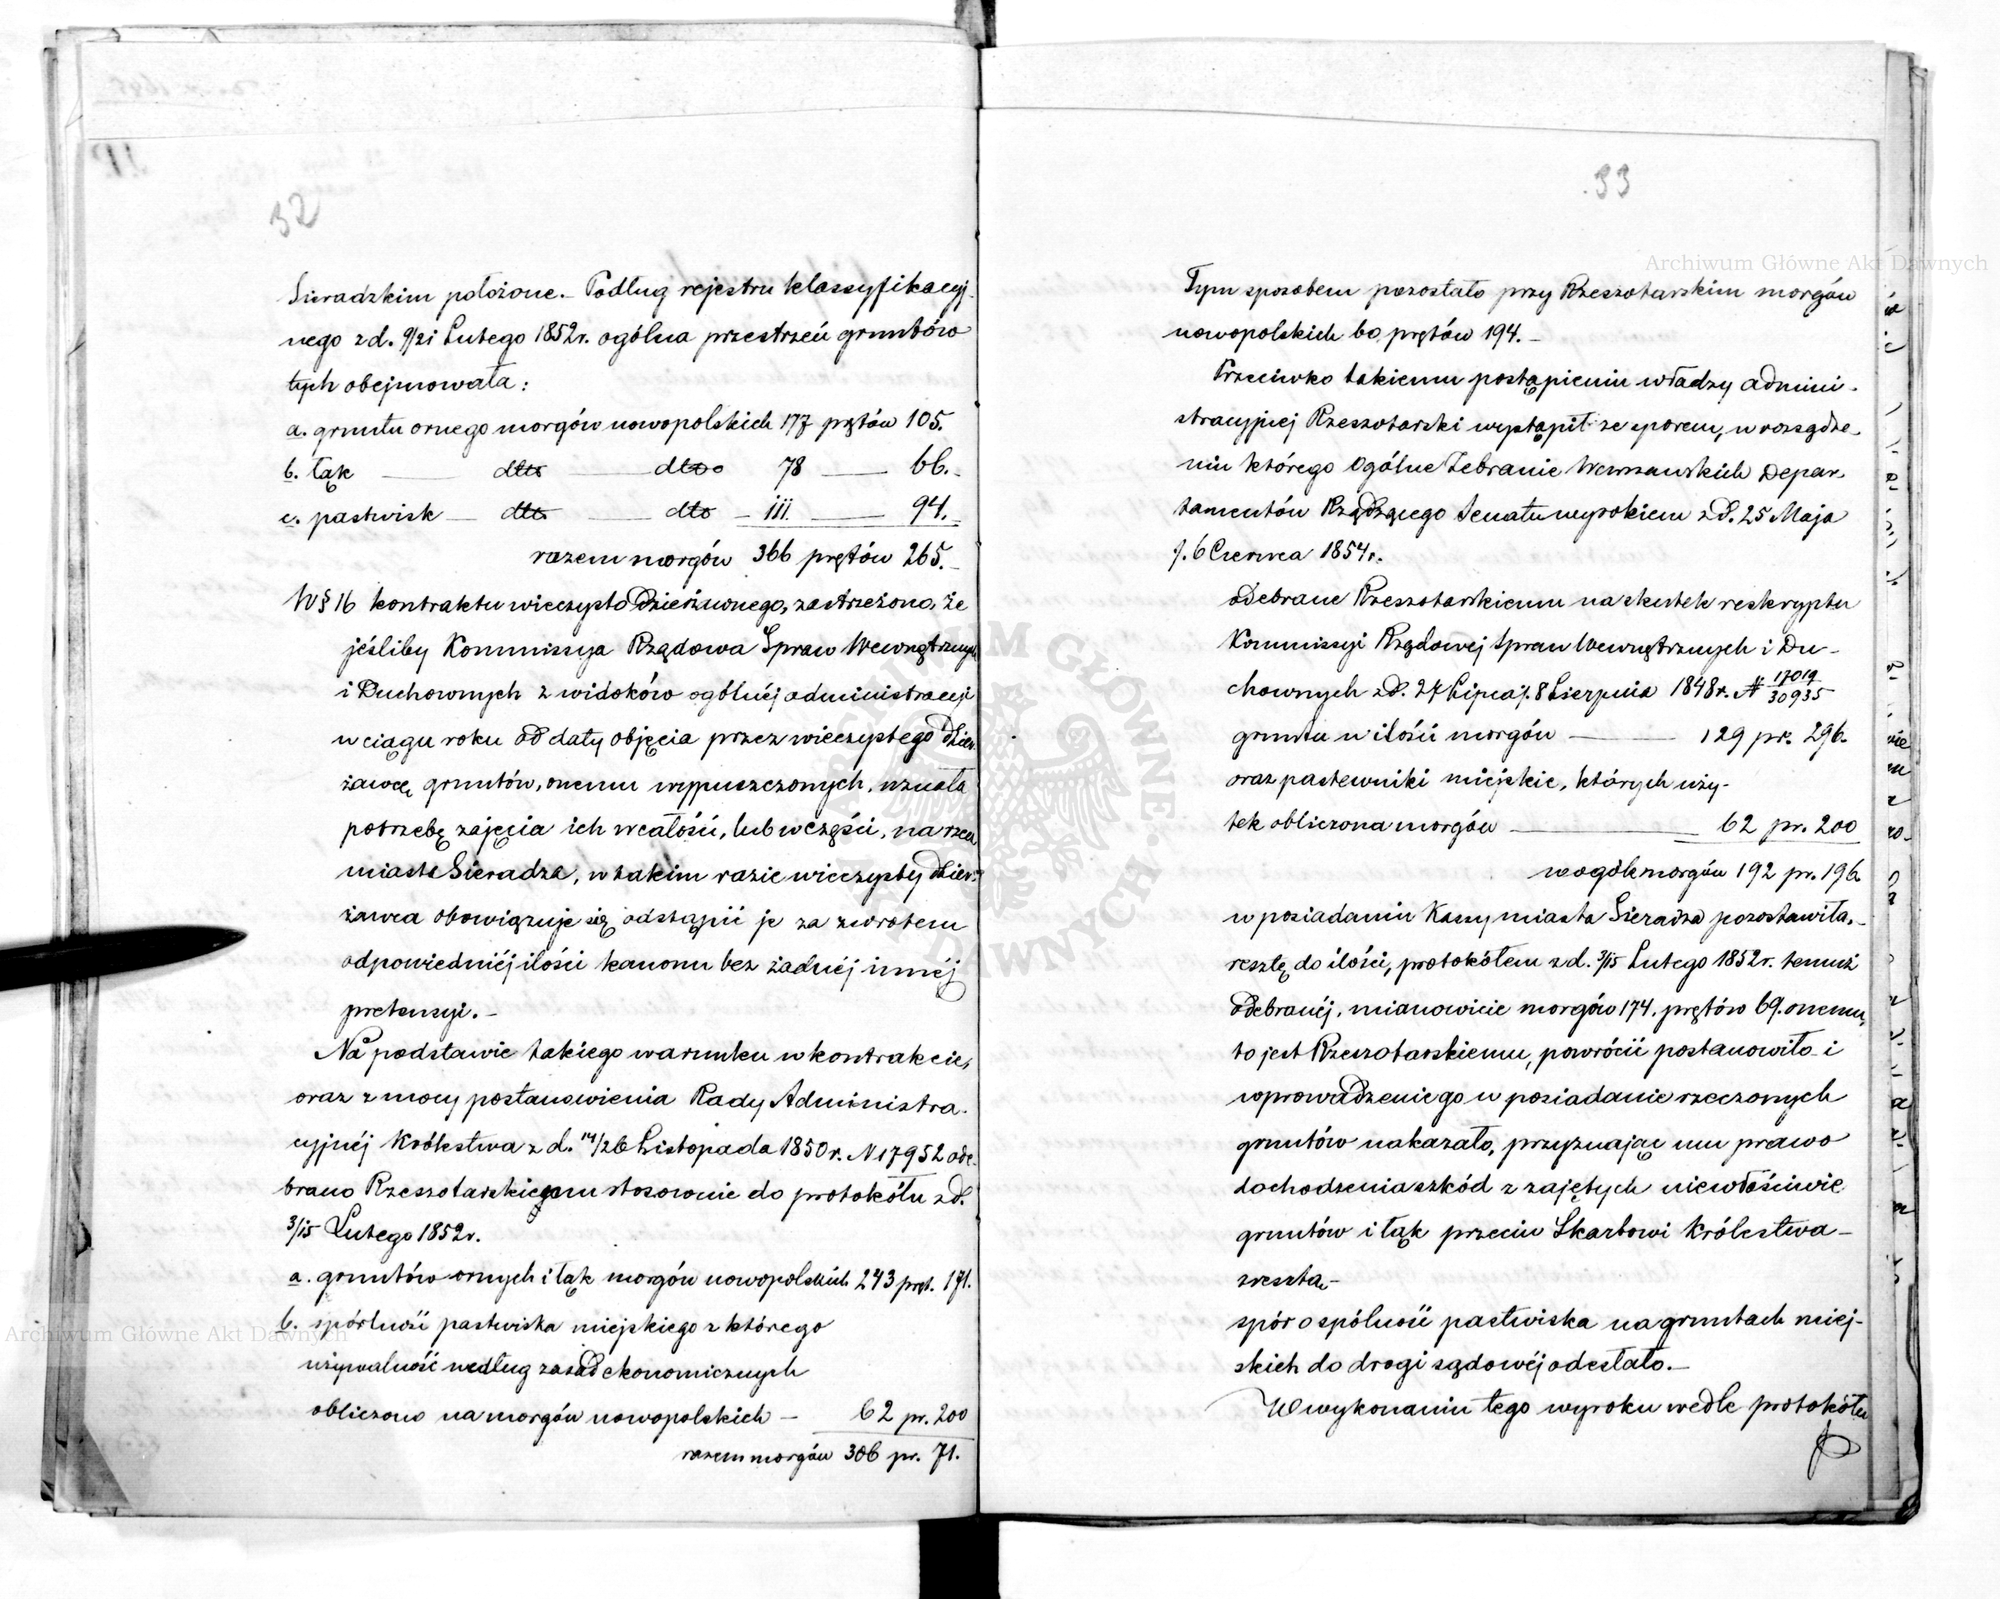 32
Sieradzkim położone. – Podług rejestru klassyfikacyj-
nego z d. 9/21 Lutego 1852 r. ogólna przestrzeń gruntów
tych obejmowała:
a. gruntu ornego morgów nowopolskich 177 prętów 105.
b. łąk — dto — dto 78 — 66. –
c. pastwisk — dto — dto – 111. — 94. –
razem morgów 366 prętów 265. –
W § 16 kontraktu wieczysto dzierżawnego, zastrzeżono, że
jeśliby Kommissyja Rządowa Spraw Wewnętrznych
i Duchownych z widoków ogólnéj administracyi
w ciągu roku od daty objęcia przez wieczystego dzier-
żawcę gruntów, onemu wypuszczonych, uznała
potrzebę zajęcia ich w całości, lub w części, na rzecz
miasta Sieradza, w takim razie wieczysty dzier-
żawca obowiązuje się odstąpić je za zwrotem
odpowiedniéj ilości kanonu bez żadnéj innéj
pretensyi. –
Na podstawie takiego warunku w kontrakcie,
oraz z mocy postanowienia Rady Administra-
cyjnéj Królestwa z d. 14/26 Listopada 1850 r. N 17952 ode-
brano Rzeszotarskiemu stosownie do protokółu z d.
3/15 Lutego 1852 r.
a. gruntów ornych i łąk morgów nowopolskich 243 pręt. 171.
b. spólność pastwiska miejskiego z którego
używalność według zasad ekonomicznych
obliczono na morgów nowopolskich – 62 pr. 200
razem morgów 306 pr. 71.
33
Tym sposobem pozostało przy Rzeszotarskim morgów
nowopolskich 60, prętów 194. –
Przeciwko takiemu postąpieniu władzy admini-
stracyjnej Rzeszotarski wystąpił ze sporem, w rozsądze-
niu którego Ogólne Zebranie Warszawskich Depar-
tamentów Rządzącego Senatu wyrokiem z d. 25 Maja
/. 6 Czerwca 1854 r.
odebrane Rzeszotarskiemu na skutek reskryptu
Kommissyi Rządowej Spraw Wewnętrznych i Du-
chownych z d. 27 Lipca /. 8 Sierpnia 1848 r. № 17019/30935
gruntu w ilości morgów — 129 pr. 296.
oraz pastewniki miejskie, których uży-
tek obliczona morgów — 62 pr. 200
w ogóle morgów 192 pr. 196
w posiadaniu Kassy miasta Sieradza pozostawiła, –
resztę do ilości, protokółem z d. 3/15 Lutego 1852 r. temuż
odebranéj, mianowicie morgów 174, prętów 69. onemu,
to jest Rzeszotarskiemu, powrócić postanowiło i
wprowadzenie go w posiadanie rzeczonych
gruntów nakazało, przyznając mu prawo
dochodzenia szkód z zajętych niewłaściwie
gruntów i łąk przeciw Skarbowi Królestwa –
zresztą –
spór o spólność pastwiska na gruntach miej-
skich do drogi sądowéj odesłało. –
W wykonaniu tego wyroku wedle protokółu
Archiwum Główne Akt Dawnych
Archiwum Główne Akt Dawnych